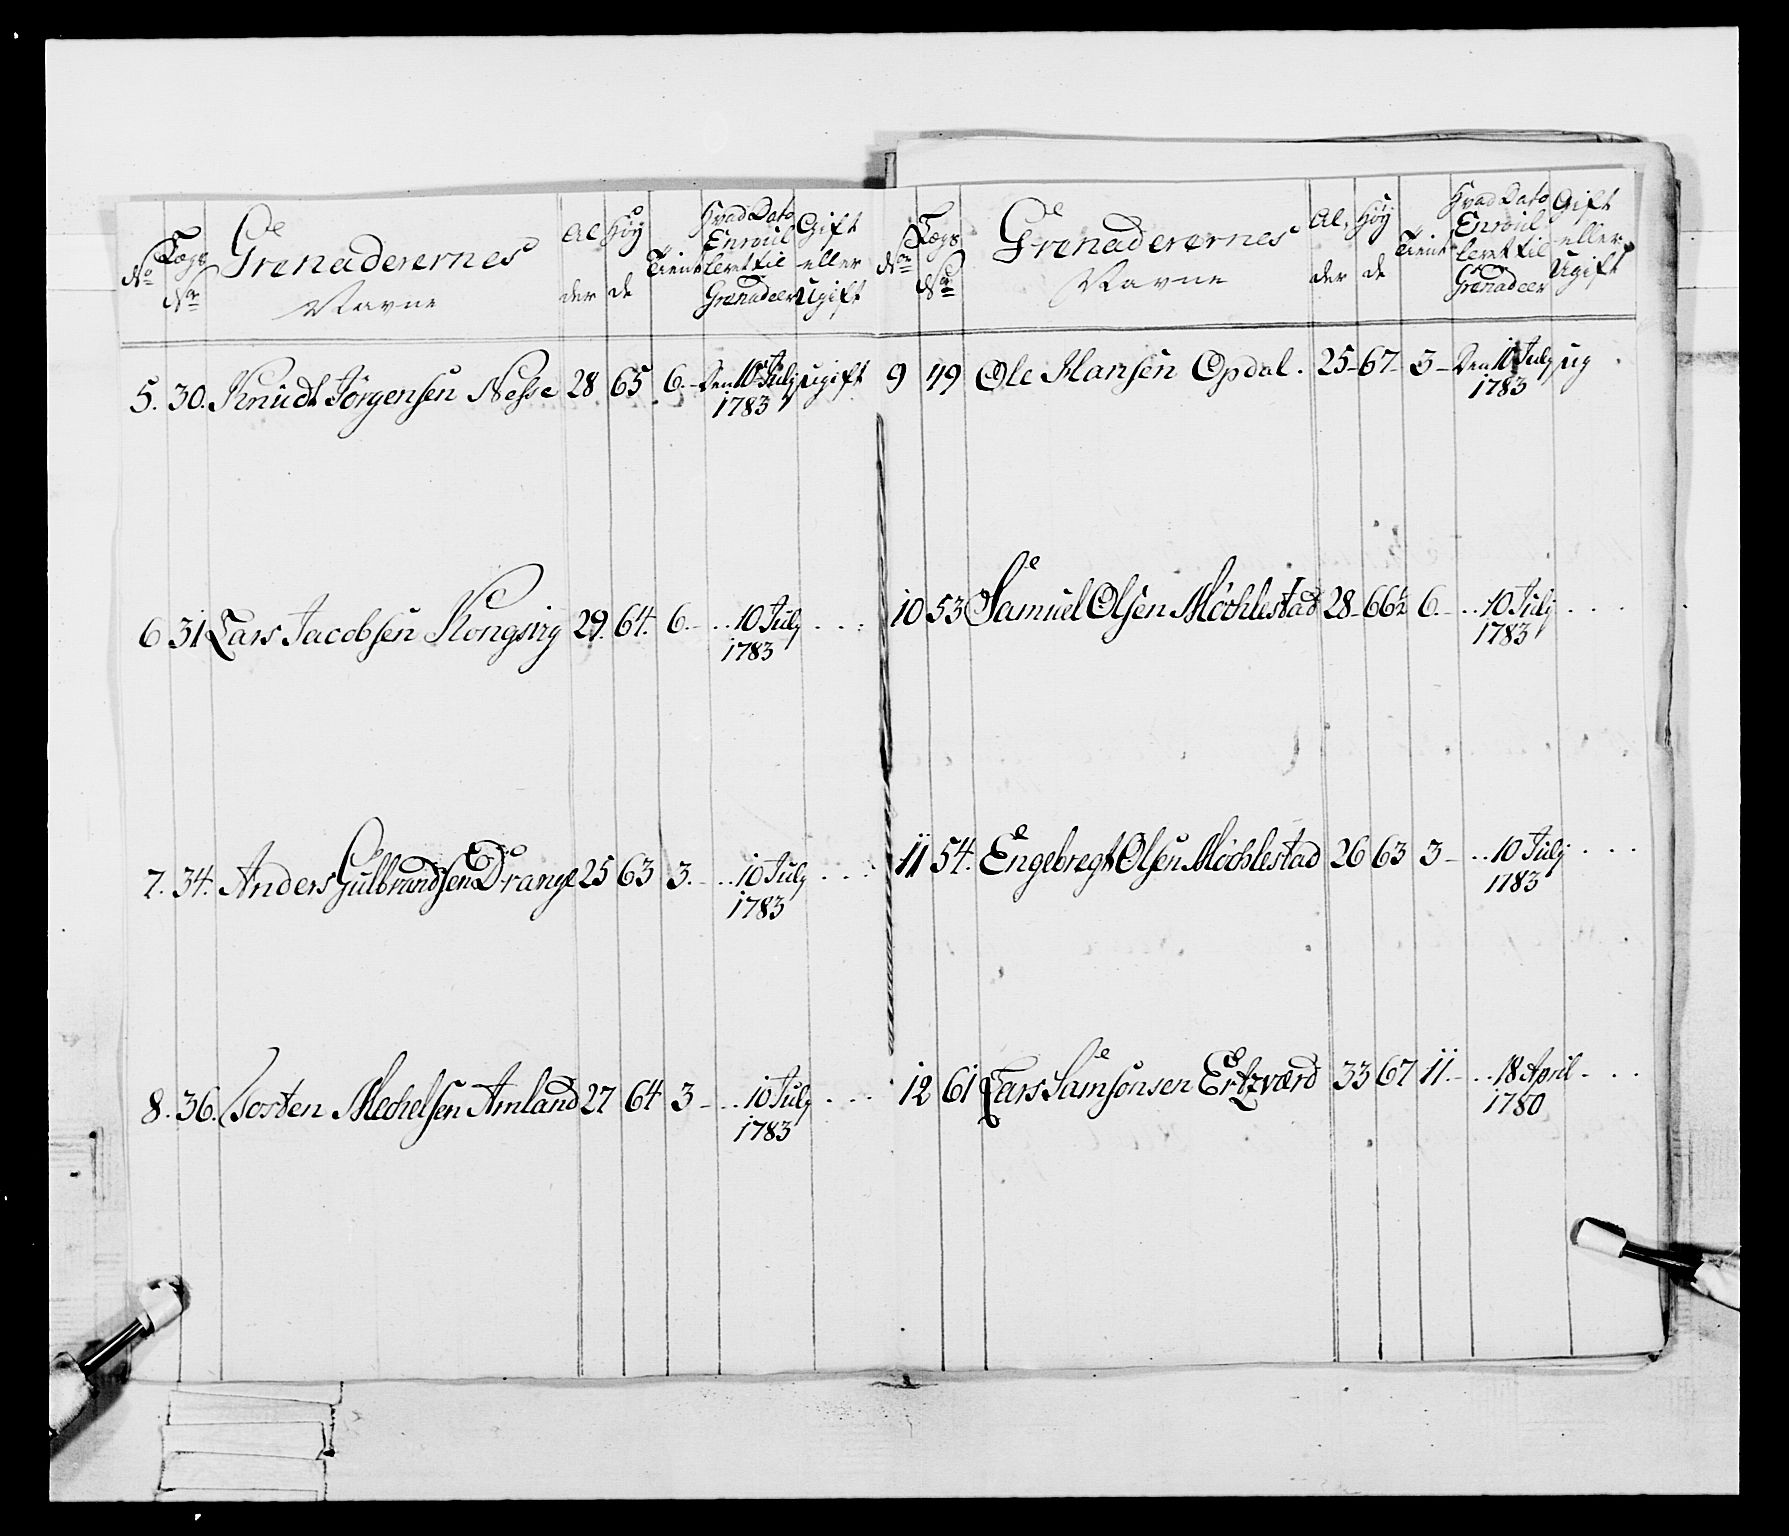 No Lægs No Grenaderernes Navne Alder Høyde Tient Hvad Dato Enroulleret til Grenadeer Gift eller Ugift
5. 30. Knudt Jørgensen Nesse 28 65 6. Den 10 July ugift
1783
6 31 Lars Jacobsen Kongsvig 29. 64. 6. - .. 10 July . . .
1783
7. 34. Anders Gulbrandsen Drange 25 63 3. - .. 10 July . . .
1783
8. 36. Tosten Mechelsen Amland 27 64 3 - .. 10 July . . .
1783
No Lægs No Grenaderernes Navne Alder Høyde Tient Hvad Dato Enroulleret til Grenadeer Gift eller Ugift
9 49 Ole Hansen Opdal. 25 - 67 - 3 - Den 10 July ug
1783
10 53 Samuel Olsen Møchlestad 28 - 66½ 6. - .. 10 July . . .
1783
11 54. Engebregt Olsen Møchlestad 26 63 3 - .. 10 July . . .
1783
12 61 Lars Samsonsen Ertzværd 33 67 11. - .. 18 April . . .
1780